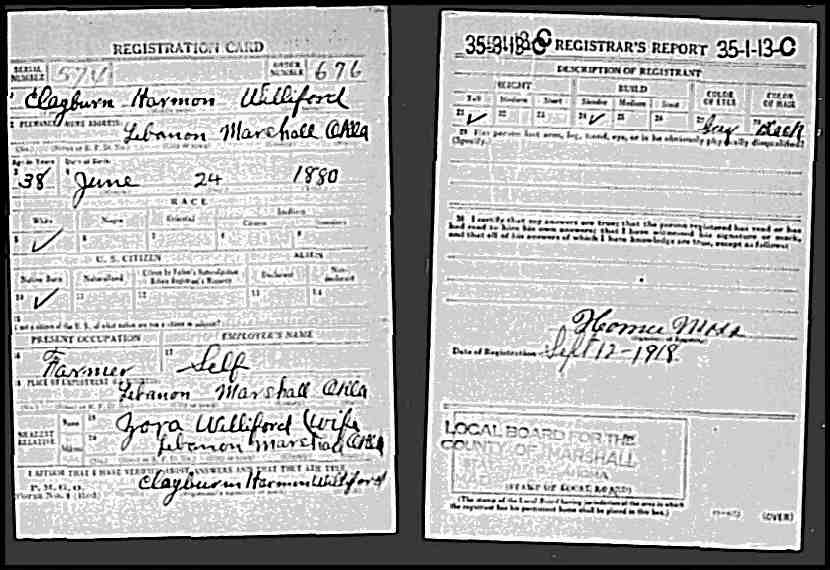 REGISTRATION CARD
SERIAL NUMBER 574 ORDER NUMBER 676
Clayburn Harmon Williford
2 PERMANENT HOME ADDRESS:
Lebanon Marshall Okla
Age in Years Date of Birth
38 June 24 1880
RACE
White Negro Oriental Indian
Citizen
✓
U. S. CITIZEN ALIEN
Native Born Naturalized Citizen by Father's Naturalization Before Registrant's Majority Declarant Non-declarant
10 ✓ 11 12 13 14
15
PRESENT OCCUPATION EMPLOYER'S NAME
Farmer 17 Self
Lebanon Marshall Okla
NEAREST RELATIVE Name Zora Williford (wife)
Lebanon Marshall Okla
I AFFIRM THAT I HAVE VERIFIED ABOVE ANSWERS AND THAT THEY ARE TRUE
P. M. G. O.
Form No. 1 (Red) Clayburn Harmon Williford
REGISTRAR'S REPORT 35-1-13-C
DESCRIPTION OF REGISTRANT
HEIGHT BUILD COLOR OF EYES COLOR OF HAIR
Tall Medium Short Slender Medium Stout
✓ ✓ Gray Black
29 Has person lost arm, leg, hand, eye, or is he obviously physically disqualified?
(Specify.)
30 I certify that my answers are true; that the person registered has read or has
had read to him his own answers; that I have witnessed his signature or mark,
and that all of his answers of which I have knowledge are true, except as follows:
Date of Registration Sept 12-1918
LOCAL BOARD FOR THE
COUNTY OF MARSHALL
OKLAHOMA
(STAMP OF LOCAL BOARD)
(The stamp of the Local Board having jurisdiction of the area in which
the registrant has his permanent home shall be placed in this box.)
(OVER)